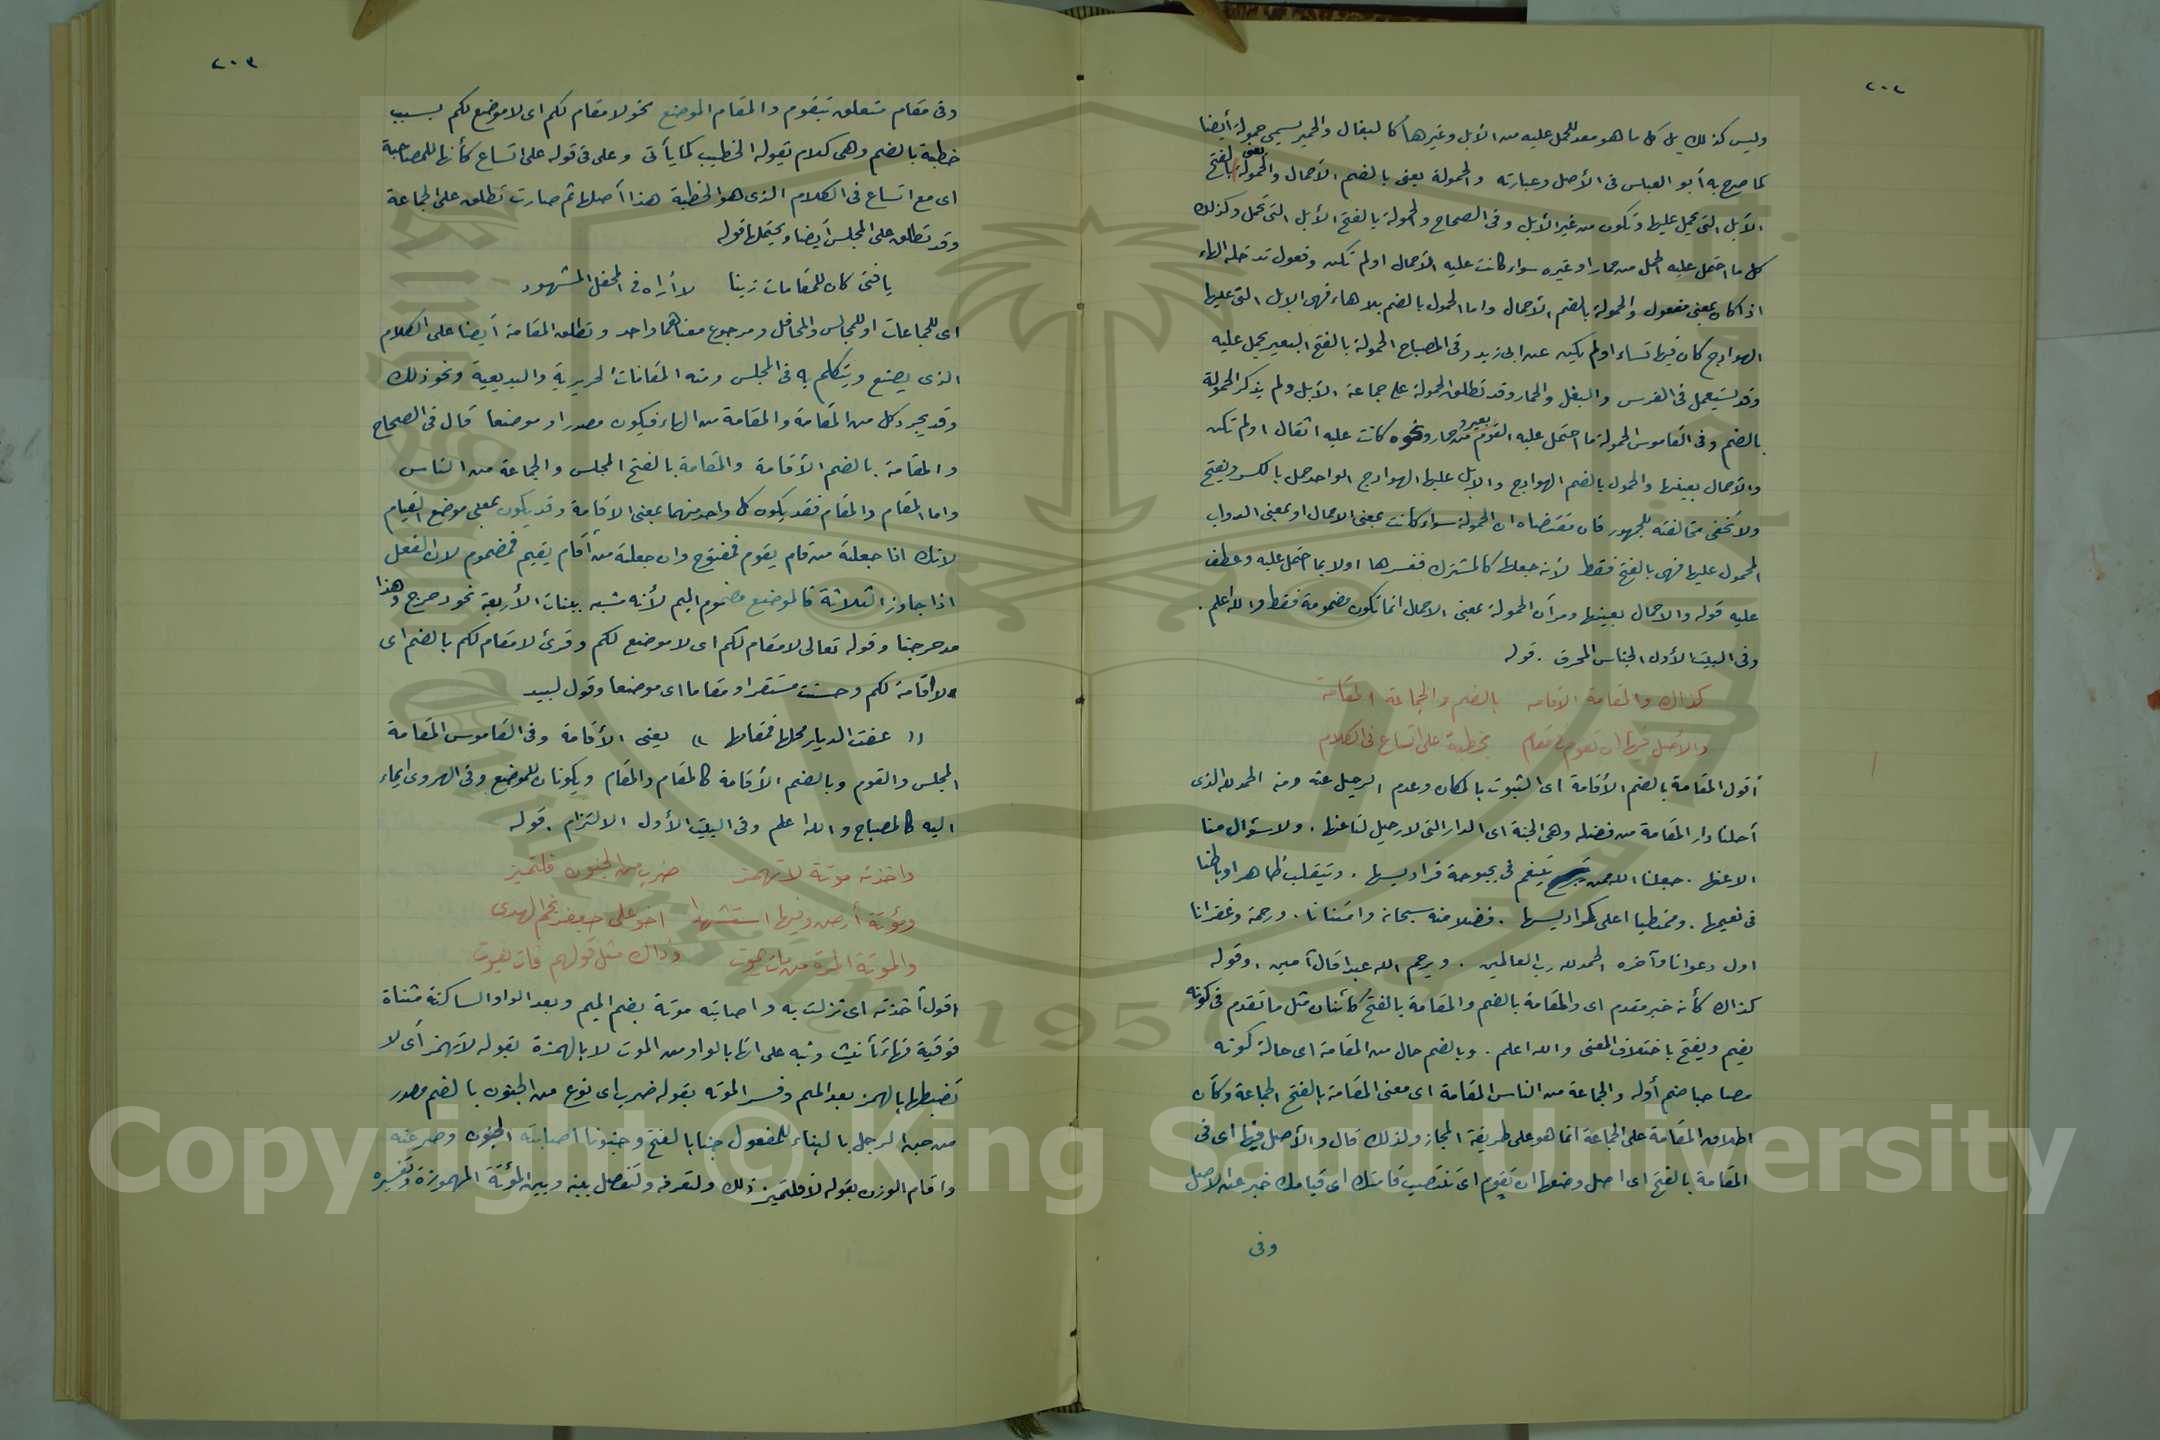 ٢٠٢
وليس كذلك بل كل ما هو معد للحمل عليه من الأبل وغيرها كالبغال والحمير يسمى حمولة أيضا
كما صرح به أبو العباس فى الأصل وعبارته والحمولة يعنى بالضم الأحمال والحمولة يعنى بالفتح
الأبل التى يحمل عليها وتكون من غير الأبل وفى الصحاح والحمولة بالفتح الأبل التى تحمل وكذلك
كل ما احتمل عليه الحمل من حمار او غيره سواء كانت عليه الأحمال او لم تكن وفعول تدخله الهاء
اذا كان بمعنى مفعول والحمولة بالضم الأحمال واما الحمول بالضم بلا هاء فهى الابل التى عليها
الهوادج كان فيها نساء او لم يكن عن ابى زيد وفى المصباح الحمولة بالفتح البعير يحمل عليه
وقد يستعمل فى الفرس والبغل والحمار وقد تطلق الحمولة على جماعة الأبل ولم يذكر الحمولة
بالضم وفى القاموس الحمولة ما احتمل عليه القوم من بعير وحمار ونحوه كانت عليه اثقال او لم تكن
والأحمال بعينها والحمول بالضم الهوادج والابل عليها الهوادج الواحد حمل بالكسر ويفتح
ولا تخفى مخالفته للجمهور فان مقتضاه ان الحمولة سواء كانت بمعنى الاحمال او بمعنى الدواب
المحمول عليها فهى بالفتح فقط لأنه جعلها كالمشترك ففسرها اولا بما احتمل عليه وعطف
عليه قوله والاحمال بعينها ومر أن الحمولة بمعنى الاحمال انما تكون مضمومة فقط والله اعلم .
وفى البيت الأول الجناس المحرف . قوله
كذاك والمقامة الاقامه بالضم والجماعة المقامة
والأصل فيها ان تقوم فى مقام بخطبة على اتساع فى الكلام
أقول المقامة بالضم الأقامة اى الثبوت بالمكان وعدم الرحيل عنه ومنه الحمد لله الذى
أحلنا دار المقامة من فضله وهى الجنة اى الدار التى لا رحيل لنا عنها . ولا سؤال منا
الا عنها . جعلنا الله ممن يتنعم فى بحبوحة فراديسها . ويتقلب ظاهرا وباطنا
فى نعيمها . وممتطيا اعلى كراديسها . فضلا منه سبحانه وامتنانا . ورحمة وغفرانا
اول دعوانا وآخره الحمد لله رب العالمين . ويرحم الله عبدا قال آمين . وقوله
كذاك كأنه خبر مقدم اى والمقامة بالضم والمقامة بالفتح كائنان مثل ما تقدم فى كونه
يضم ويفتح باختلاف المعنى والله اعلم . وبالضم حال من المقامة اى حالة كونه
مصاحبا ضم أوله والجماعة من الناس المقامة اى معنى المقامة بالفتح الجماعة وكأن
اطلاق المقامة على الجماعة انما هو على طريقة المجاز ولذلك قال والأصل فيها اى فى
المقامة بالفتح اى اصل وضعها ان تقوم اى تنتصب قامتك اى قيامك خبر عن الاصل
وفى
٢٠٣
وفى مقام متعلق بتقوم والمقام الموضع نحو لا مقام لكم اى لا موضع لكم بسبب
خطبة بالضم وهى كلام يقوله الخطيب كما يأتى وعلى فى قوله على اتساع كأنها للمصاحبة
اى مع اتساع فى الكلام الذى هو الخطبة هذا أصلها ثم صارت تطلق على الجماعة
وقد تطلق على المجلس أيضا ويحتملها قوله
يا فتى كان للمقامات زينا لا أراه فى المحفل المشهود
اى للجماعات او للمجالس والمحافل ومرجوع معناهما واحد وتطلق المقامة أيضا على الكلام
الذى يصنع ويتكلم به فى المجلس ومنه المقامات الحريرية والبديعية ونحو ذلك
وقد يجرد كل من المقامة والمقامة من الهاء فيكون مصدرا وموضعا قال فى الصحاح
والمقامة بالضم الأقامة والمقامة بالفتح المجلس والجماعة من الناس
واما المقام والمقام فقد يكون كل واحد منهما بمعنى الاقامة وقد يكون بمعنى موضع القيام
لانك اذا جعلته من قام يقوم فمفتوح وان جعلته من أقام يقيم فمضموم لان الفعل
اذا جاوز الثلاثة فالموضع مضموم الميم لأنه شبه ببنات الأربعة نحو دحرج وهذا
مدحرجنا وقوله تعالى لا مقام لكم اى لا موضع لكم وقرئ لا مقام لكم بالضم اى
لا اقامة لكم وحسنت مستقرا ومقاما اى موضعا وقول لبيد
(( عفت الديار محلها فمقامها )) يعنى الأقامة وفى القاموس المقامة
المجلس والقوم وبالضم الأقامة كالمقام والمقام ويكونان للموضع وفى الهروى ايماء
اليه كالمصباح والله اعلم وفى البيت الأول الالتزام . قوله
واخذته موتة لا تهمز ضرب من الجنون فلتميز
ومؤتة أرض وفيها استشهدا اخو على جعفر نجم الهدى
والموتة المرة من مات يموت وذاك مثل قولهم فات يفوت
اقول أخذته اى نزلت به واصابته موتة بضم الميم وبعد الواو الساكنة مثناة
فوقية فهاء تأنيث ونبه على انها بالواو من الموت لا بالهمزة بقوله لا تهمز أى لا
تضبطها بالهمز بعد الميم وفسر الموته بقوله ضرب اى نوع من الجنون بالضم مصدر
من جن الرجل بالبناء للمفعول جنا بالفتح وجنونا اصابته الجنون وصرعته
واقام الوزن بقوله لا فلتميز ذلك ولتعرفه ولتفصل بينه وبين المؤتة المهموزة وتفسيره
1957
Copyright © King Saud University